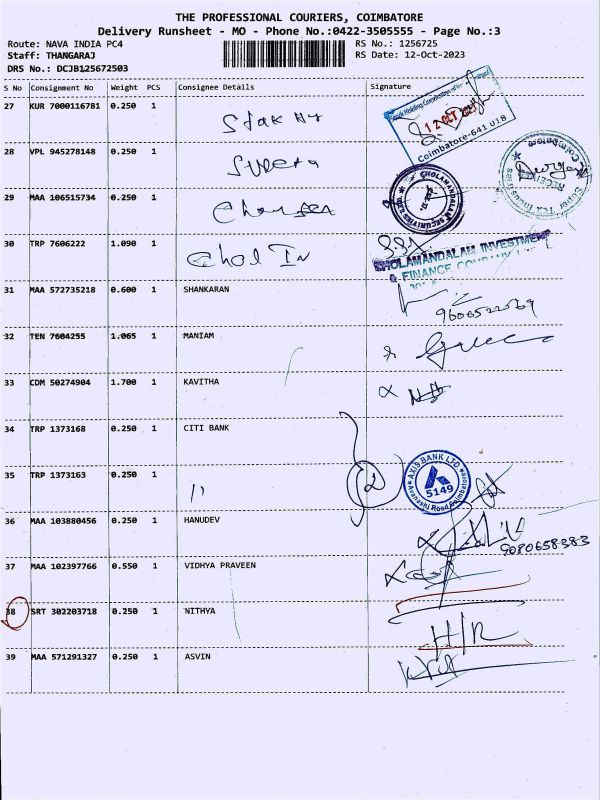 THE PROFESSIONAL COURIERS, COIMBATORE
Delivery Runsheet - MO - Phone No.:0422-3505555 - Page No.:3
Route: NAVA INDIA PC4 RS No.: 1256725
Staff: THANGARAJ RS Date: 12-Oct-2023
DRS No.: DCJB125672503
S No Consignment No Weight PCS Consignee Details Signature
27 KUR 7000116781 0.250 1
12 OCT
Coimbatore-641 018
28 VPL 945278148 0.250 1
29 MAA 106515734 0.250 1
CHOLAMANDALAM SECURITIES
30 TRP 7606222 1.090 1 Chol In
CHOLAMANDALAM INVESTMENT
& FINANCE COMPANY
31 MAA 572735218 0.600 1 SHANKARAN
32 TEN 7604255 1.065 1 MANIAM
33 CDM 50274904 1.700 1 KAVITHA
34 TRP 1373168 0.250 1 CITI BANK
35 TRP 1373163 0.250 1 "
AXIS BANK LTD.
5149
Avanashi Road, Coimbatore
36 MAA 103880456 0.250 1 HANUDEV
9080658383
37 MAA 102397766 0.550 1 VIDHYA PRAVEEN
38 SRT 302203718 0.250 1 NITHYA
H/R
39 MAA 571291327 0.250 1 ASVIN